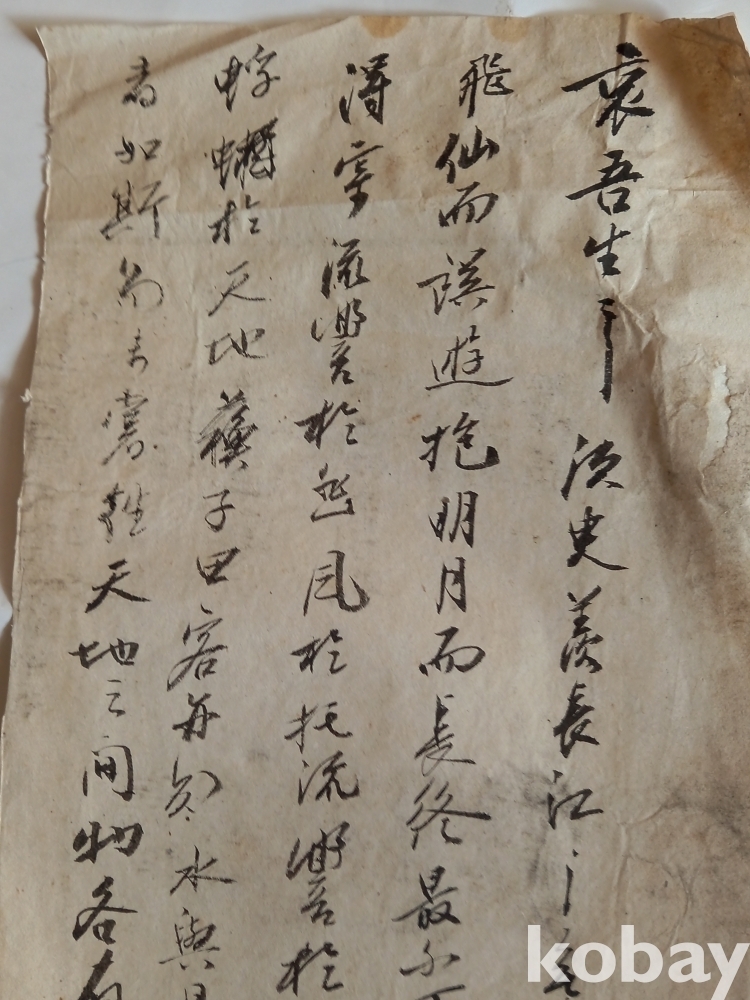 哀吾生之湏史羨長江之
飛仙而誤遊抱明月而長終最不
得流響於悲風於托流響於
蜉於天地蘇子曰客知水與月
者如斯而未嘗往天地之間物各有
kobay